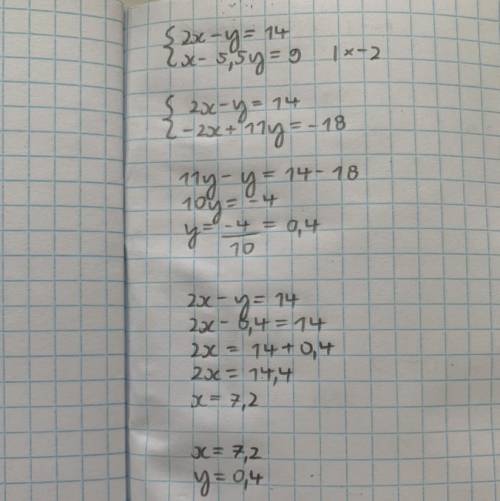 { 2x - y = 14
{ x - 5,5y = 9 | x - 2
{ 2x - y = 14
{ -2x + 11y = -18
11y - y = 14 - 18
10y = -4
y = -4/10 = 0,4
2x - y = 14
2x - 0,4 = 14
2x = 14 + 0,4
2x = 14,4
x = 7,2
x = 7,2
y = 0,4